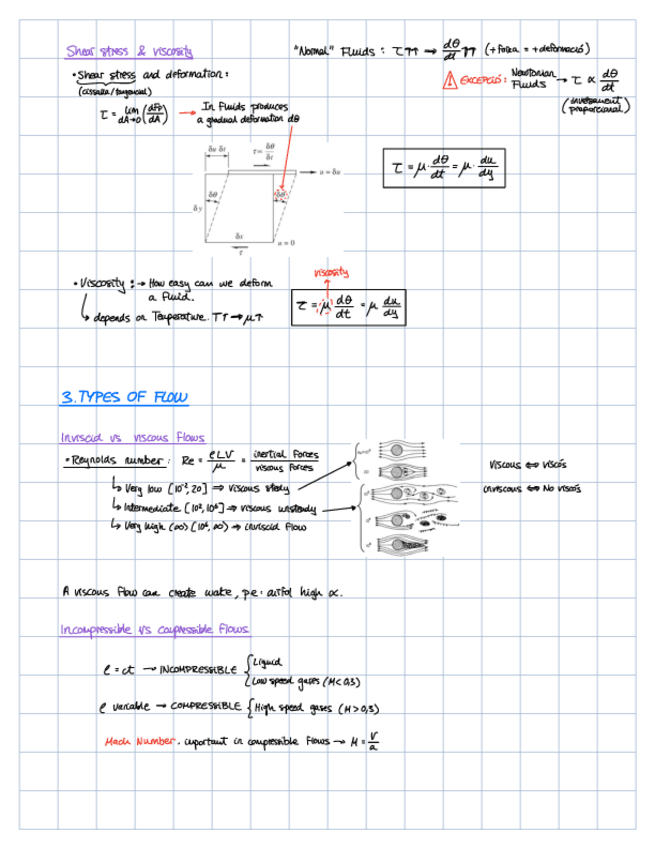 Shear stress & viscosity
"Normal" Fluids : τ↑↑ → dθ/dt ↑↑ (+ força = + deformació)
• Shear stress and deformation:
(cissalla/tangencial)
⚠ EXCEPCIÓ: Newtonian Fluids → τ ∝ dθ/dt
(inversament proporcional)
τ = lim dA→0 (dFt/dA) → In Fluids produces
a gradual deformation dθ
δu δt
τ = δθ/δt
u = δu
δθ
δθ
δy
δx
u = 0
τ
τ = μ · dθ/dt = μ · du/dy
viscosity
• Viscosity : → How easy can we deform
a Fluid.
↳ depends on Temperature. T↑ → μ↑
τ = μ dθ/dt = μ du/dy
3. TYPES OF FLOW
Inviscid vs viscous Flows
• Reynolds number: Re = ρLV/μ = inertial Forces/viscous Forces
↳ Very low [10⁻², 20] ⇒ viscous stady
↳ Intermediate [10², 10⁶] ⇒ viscous unsteady
↳ Very high (∞) [10⁶, ∞) → inviscid Flow
Viscous ⇔ viscós
inviscous ⇔ No viscós
A viscous Flow can create wake, p.e: airfoil high α.
Incompressible vs compressible Flows
ρ = ct → INCOMPRESSIBLE { Liquid
Low speed gases (M < 0,3)
ρ variable → COMPRESSIBLE { High speed gases (M > 0,3)
Mach Number. important in compressible Flows → M = V/a